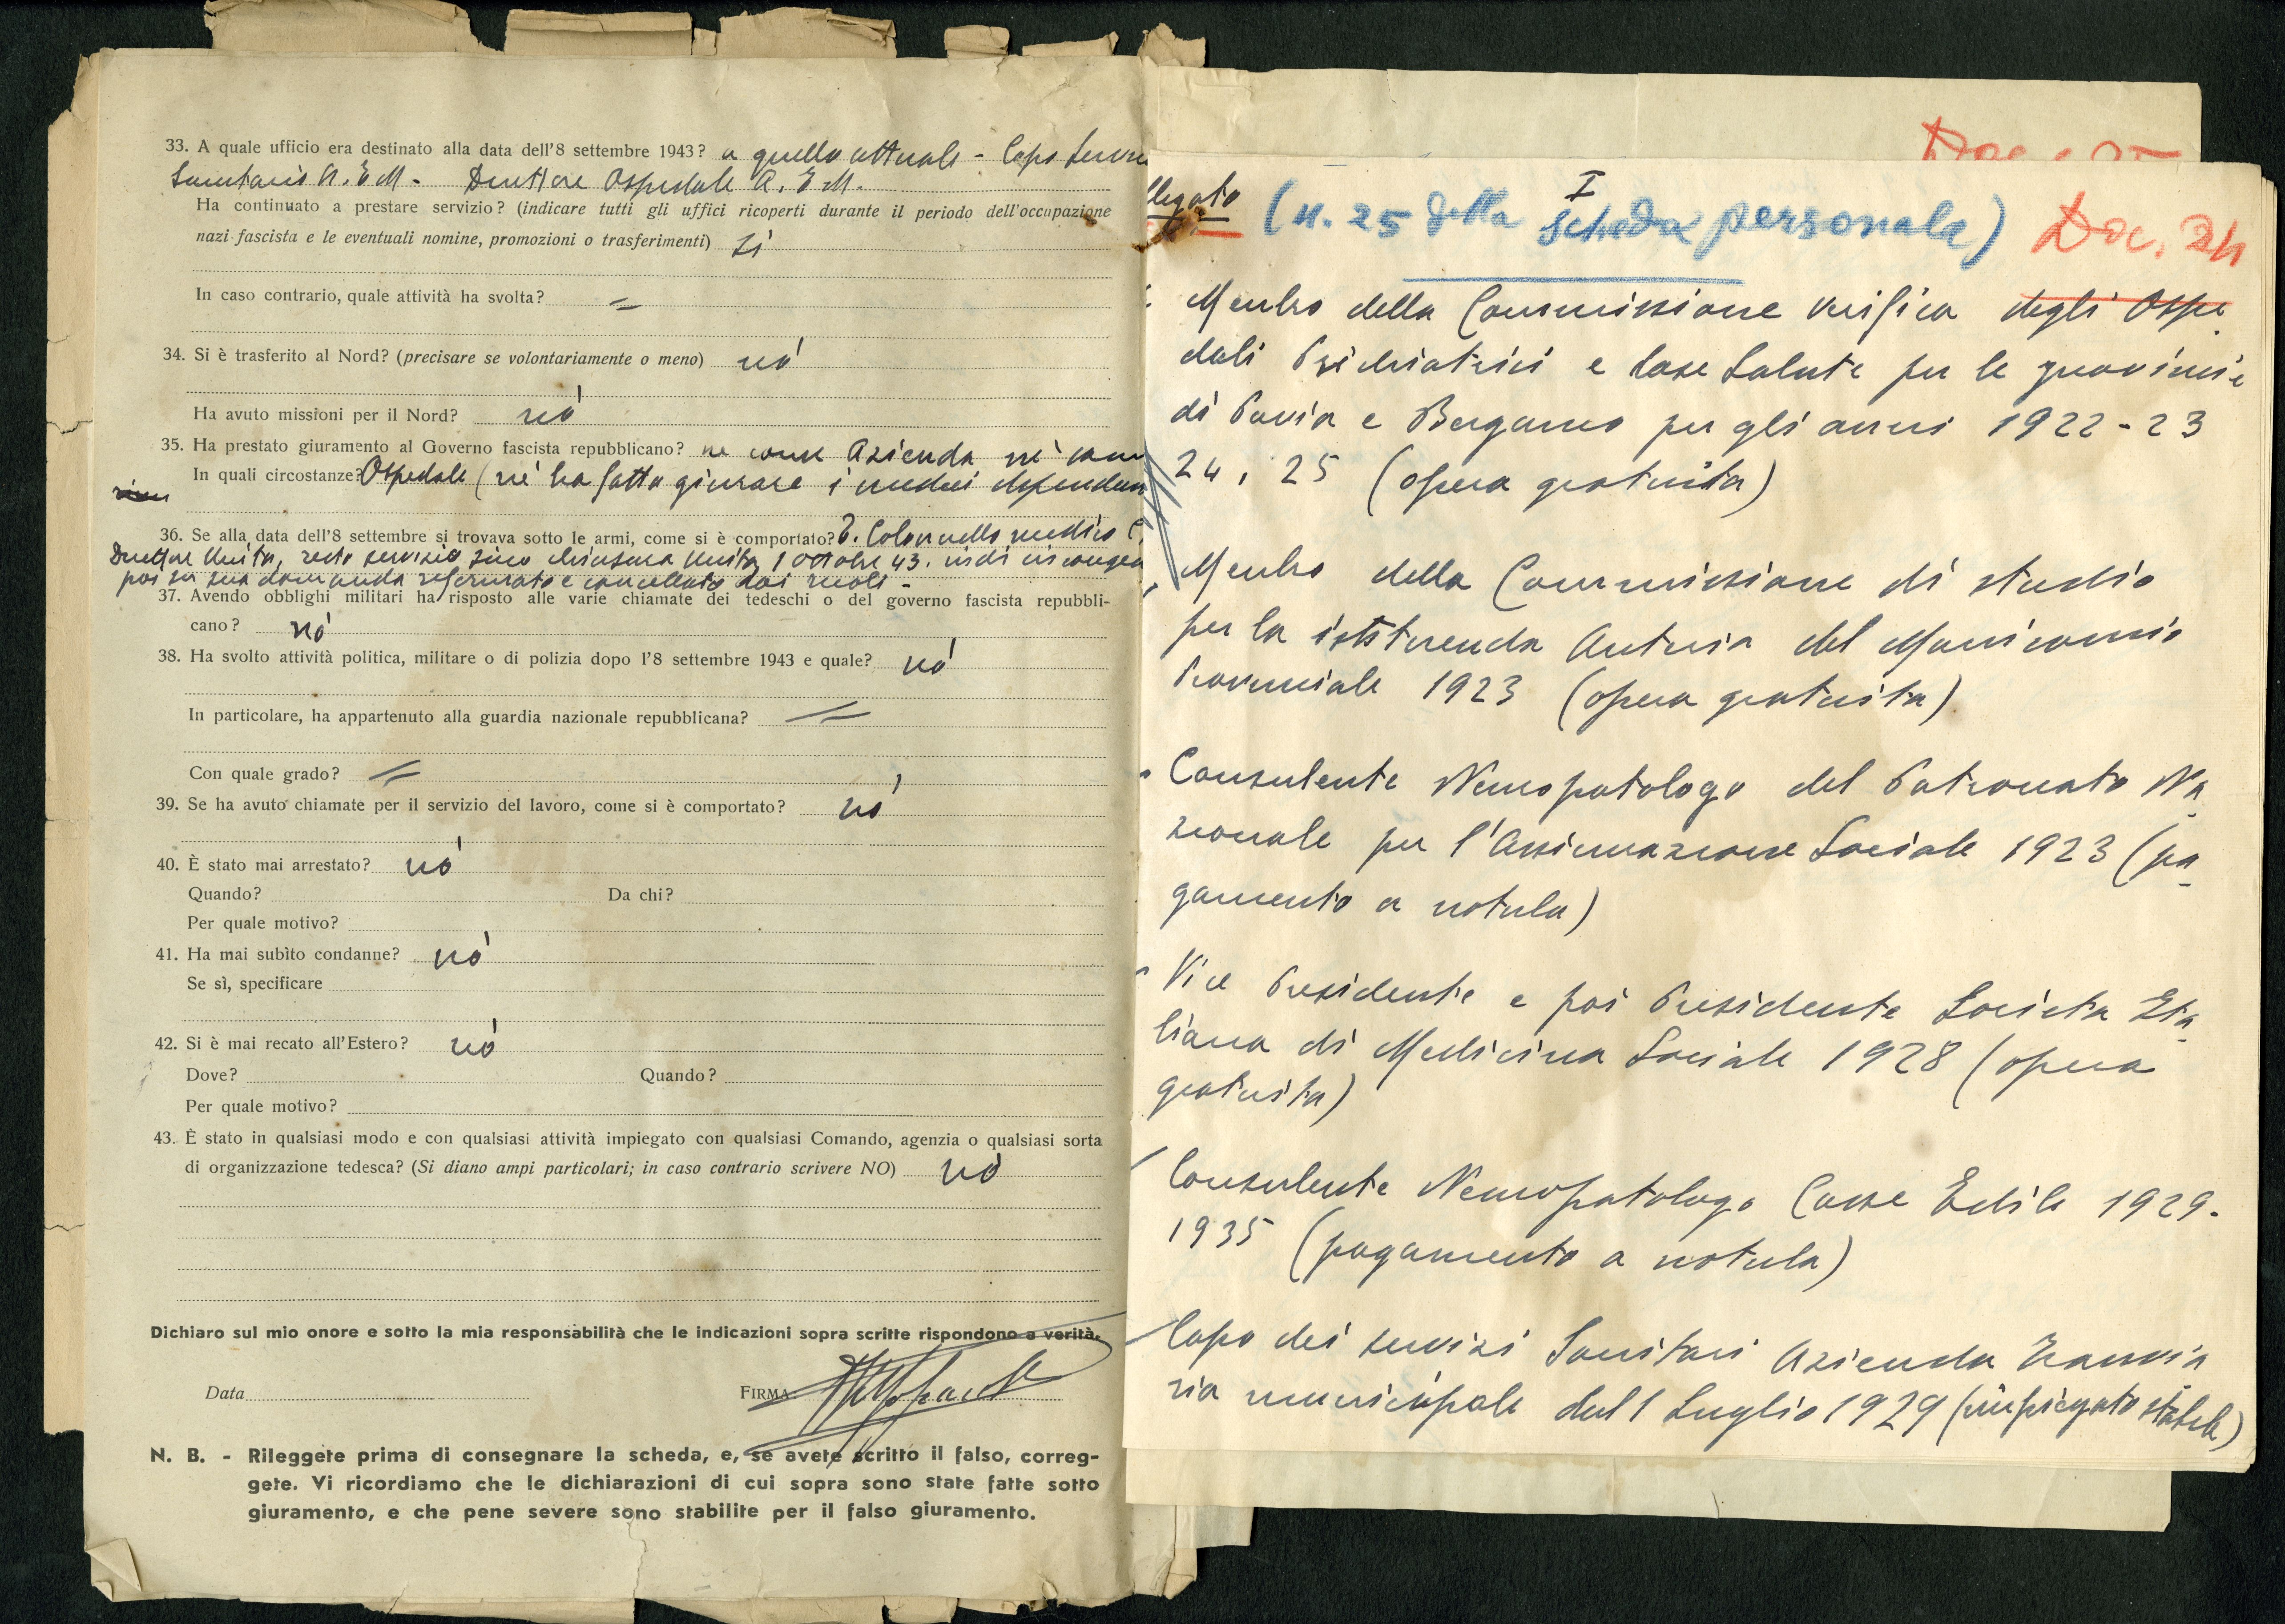 33. A quale ufficio era destinato alla data dell'8 settembre 1943? a quello attuale - Capo
Sanitario A. E M. - Direttore Ospedale A. E M.
Ha continuato a prestare servizio? (indicare tutti gli uffici ricoperti durante il periodo dell'occupazione
nazi-fascista e le eventuali nomine, promozioni o trasferimenti) si
In caso contrario, quale attività ha svolta? =
34. Si è trasferito al Nord? (precisare se volontariamente o meno) nó
Ha avuto missioni per il Nord? nó
35. Ha prestato giuramento al Governo fascista repubblicano? ne come Azienda nè
In quali circostanze? Ospedale (nè ha fatto giurare i medici
36. Se alla data dell'8 settembre si trovava sotto le armi, come si è comportato? T. Colonnello medico
Direttore Unità, restò servizio sino chiusura Unità 1 ottobre 43. indi in
poi su sua domanda riformato e cancellato dai ruoli -
37. Avendo obblighi militari ha risposto alle varie chiamate dei tedeschi o del governo fascista repubbli-
cano? nó
38. Ha svolto attività politica, militare o di polizia dopo l'8 settembre 1943 e quale? nó
In particolare, ha appartenuto alla guardia nazionale repubblicana? =
Con quale grado? =
39. Se ha avuto chiamate per il servizio del lavoro, come si è comportato? nó
40. È stato mai arrestato? nó
Quando? Da chi?
Per quale motivo?
41. Ha mai subìto condanne? nó
Se sì, specificare
42. Si è mai recato all'Estero? nó
Dove? Quando?
Per quale motivo?
43. È stato in qualsiasi modo e con qualsiasi attività impiegato con qualsiasi Comando, agenzia o qualsiasi sorta
di organizzazione tedesca? (Si diano ampi particolari; in caso contrario scrivere NO) nó
Dichiaro sul mio onore e sotto la mia responsabilità che le indicazioni sopra scritte rispondono a verità.
Data FIRMA
N. B. - Rileggete prima di consegnare la scheda, e, se avete scritto il falso, correg-
gete. Vi ricordiamo che le dichiarazioni di cui sopra sono state fatte sotto
giuramento, e che pene severe sono stabilite per il falso giuramento.
llegato I
(n. 25 della scheda personale) Doc. 24
Membro della Commissione verifica degli Ospe
dali Psichiatrici e Case Salute per le provincie
di Pavia e Bergamo per gli anni 1922-23
24, 25 (opera gratuita)
Membro della Commissione di studio
per la Autonia del Manicomio
Provinciale 1923 (opera gratuita)
Consulente Neuropatologo del Patronato Na
zionale per l'Assicurazione Sociale 1923 (pa
gamento a notula)
Vice Presidente e poi Presidente Società Ita
liana di Medicina Sociale 1928 (opera
gratuita)
Consulente Neuropatologo Casse Edile 1929.
1935 (pagamento a notula)
Capo dei servizi Sanitari Azienda Tranvia
ria municipale dal 1 Luglio 1929 (impiegato stabile)